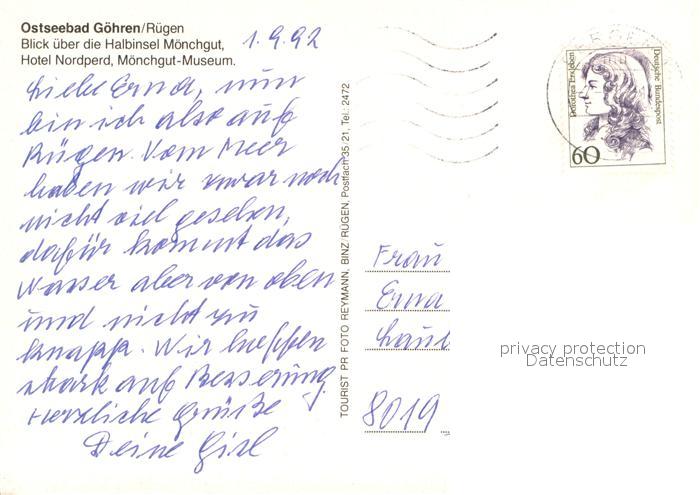 Ostseebad Göhren/Rügen
Blick über die Halbinsel Mönchgut,
Hotel Nordperd, Mönchgut-Museum.
1.9.92
Liebe Erna, nun
bin ich also auf
Rügen. Vom Meer
haben wir zwar noch
nicht viel gesehen,
dafür kommt das
Wasser aber von oben
und nicht zu
knapp. Wir hoffen
stark auf Besserung.
Herzliche Grüße
Deine Gisl
TOURIST PR FOTO REYMANN, BINZ/RÜGEN, Postfach 35 21, Tel.: 2472
Dorothea Erxleben
Deutsche Bundespost
60
Frau
Erna
8019
privacy protection
Datenschutz